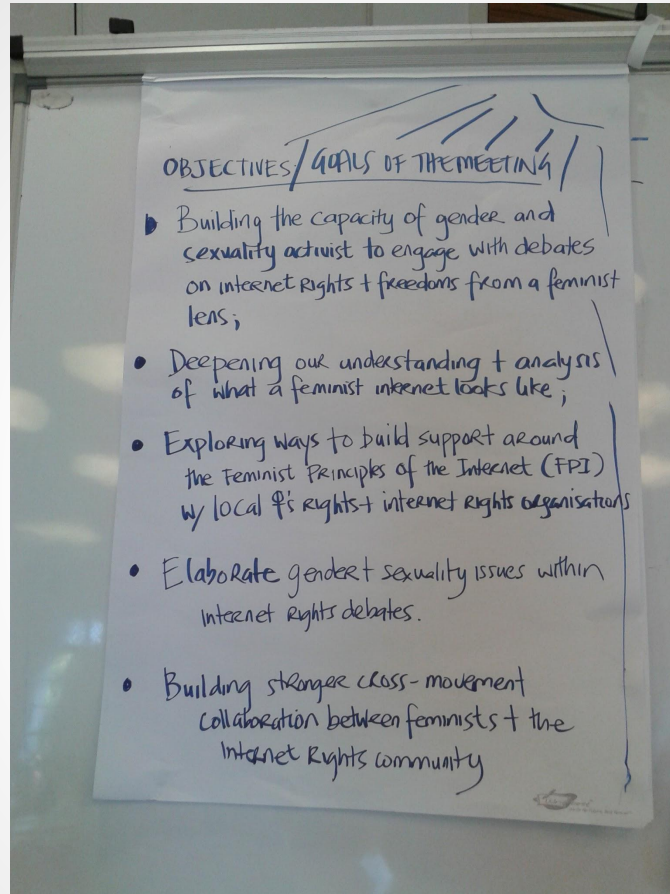 OBJECTIVES/GOALS OF THE MEETING
Building the capacity of gender and
sexuality activist to engage with debates
on internet Rights + freedoms from a feminist
lens;
• Deepening our understanding + analysis
of what a feminist internet looks like;
• Exploring ways to build support around
the Feminist Principles of the Internet (FPI)
w/ local ♀'s Rights + internet Rights organisations
• Elaborate gender + sexuality issues within
Internet Rights debates.
• Building stronger cross-movement
collaboration between feminists + the
Internet Rights community